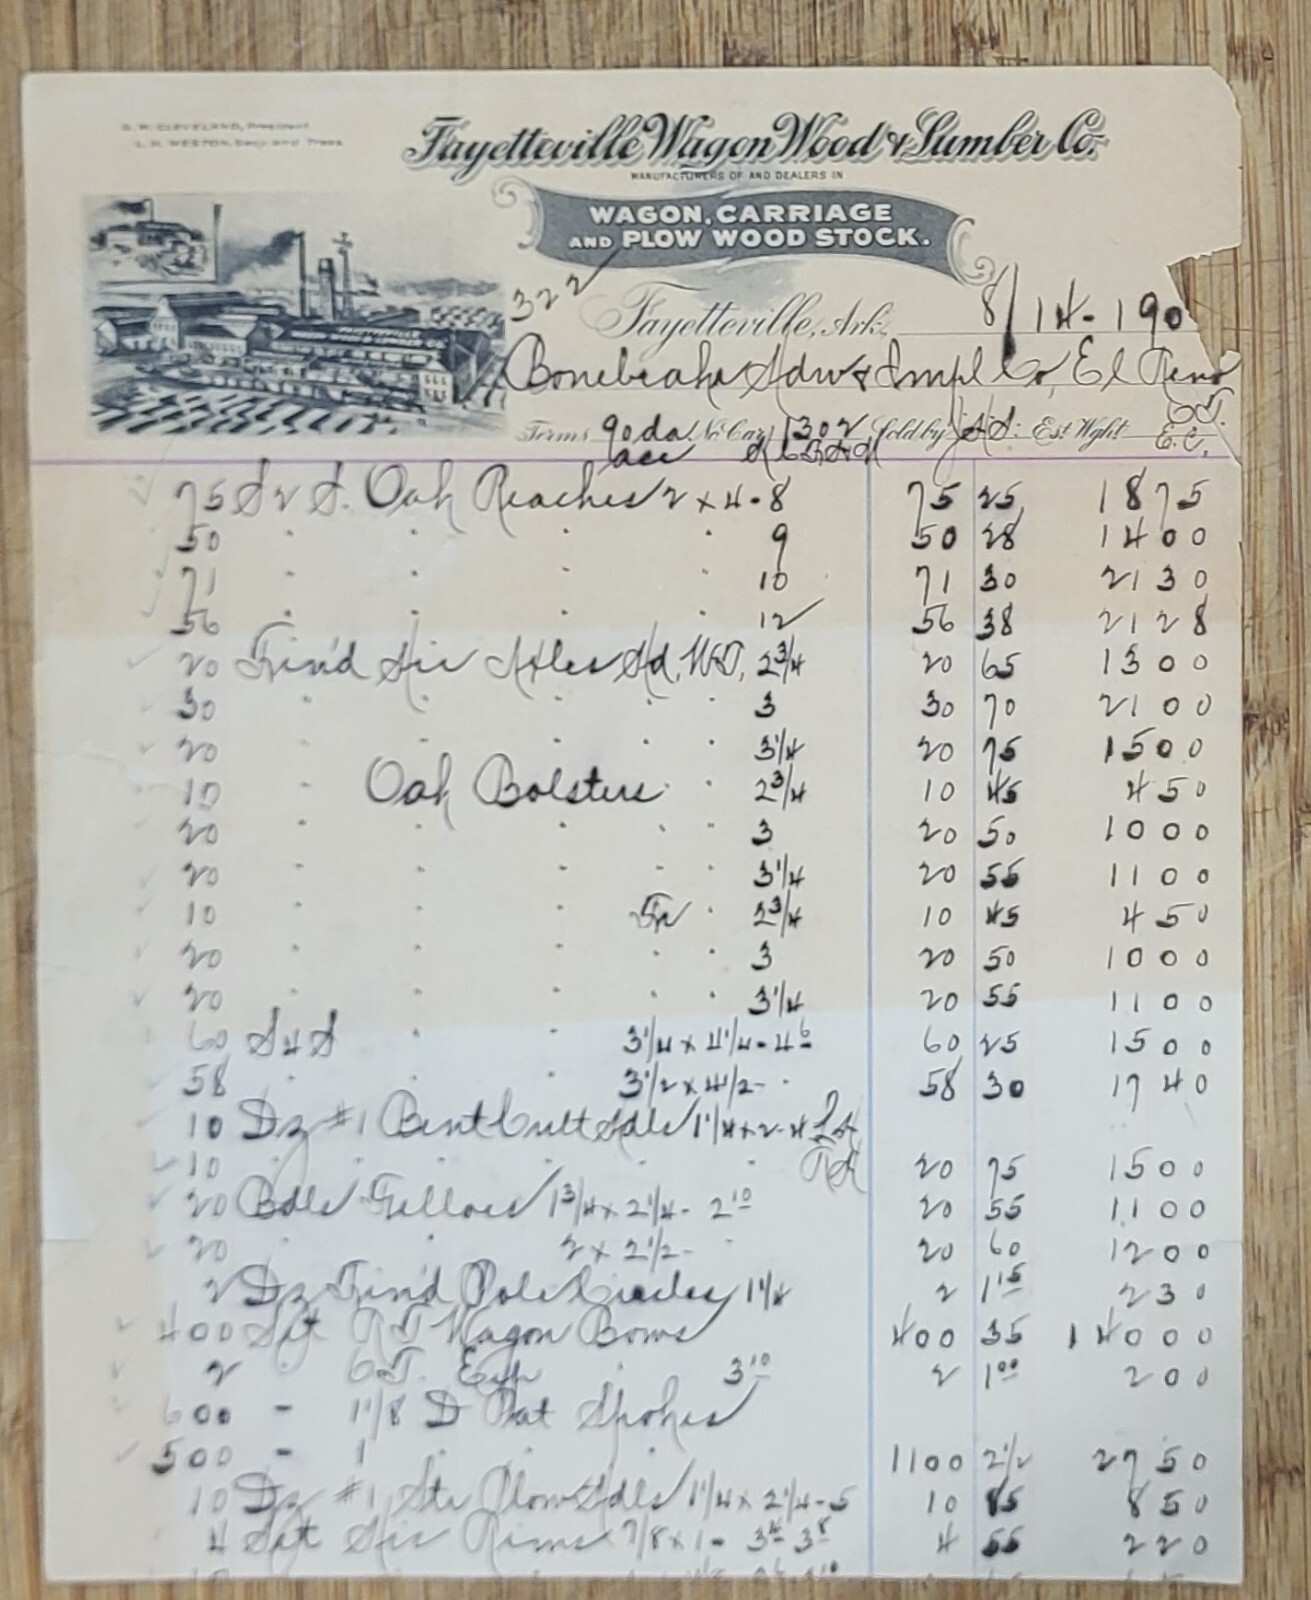 G. W. CLEVELAND, President
L. H. WESTON, Secy. and Treas.
Fayetteville Wagon Wood & Lumber Co.
MANUFACTURERS OF AND DEALERS IN
WAGON, CARRIAGE
AND PLOW WOOD STOCK.
322
Fayetteville, Ark. 8/14-190
Bonebrake Hdw & Impl Co, El Reno
O.T.
Terms 90da No Car 1302 Sold by Est Wght E.C.
acc
75 S2S. Oak Reaches 2 x 4-8 75 25 1875
50 " " " " 9 50 28 1400
71 " " " " 10 71 30 2130
56 " " " " 12 56 38 2128
20 Fin'd Hic Axles Hd, W&D, 2 3/4 20 65 1300
30 " " " " " 3 30 70 2100
20 " " " " " 3 1/4 20 75 1500
10 " Oak Bolsters " 2 3/4 10 45 450
20 " " " " " 3 20 50 1000
20 " " " " " 3 1/4 20 55 1100
10 " " " Fr " 2 3/4 10 45 450
20 " " " " " 3 20 50 1000
20 " " " " " 3 1/4 20 55 1100
60 S4S " " 3 1/4 x 4 1/4-4 6 60 25 1500
58 " " " 3 1/2 x 4 1/2- " 58 30 1740
10 Dz #1 Bent Cult Hdls 1 1/4 x 2-4 Lh
10 " " " " " " Rh 20 75 1500
20 Bdls Felloes 1 3/4 x 2 1/4- 2 10 20 55 1100
20 " " 2 x 2 1/2- " 20 60 1200
2 Dz Fin'd Pole Circles 1 1/4 2 1 15 230
400 Set RT Wagon Bows 400 35 14000
2 " OT. Exp " 3 10 2 1 00 200
600 - 1 1/8 D Pat Spokes
500 - 1 " " " 1100 2 1/2 2750
10 Dz #1 Str Plow Hdls 1 1/4 x 2 1/4-5 10 85 850
4 Set Hic Rims 7/8 x 1- 3 4 3 8 4 55 220